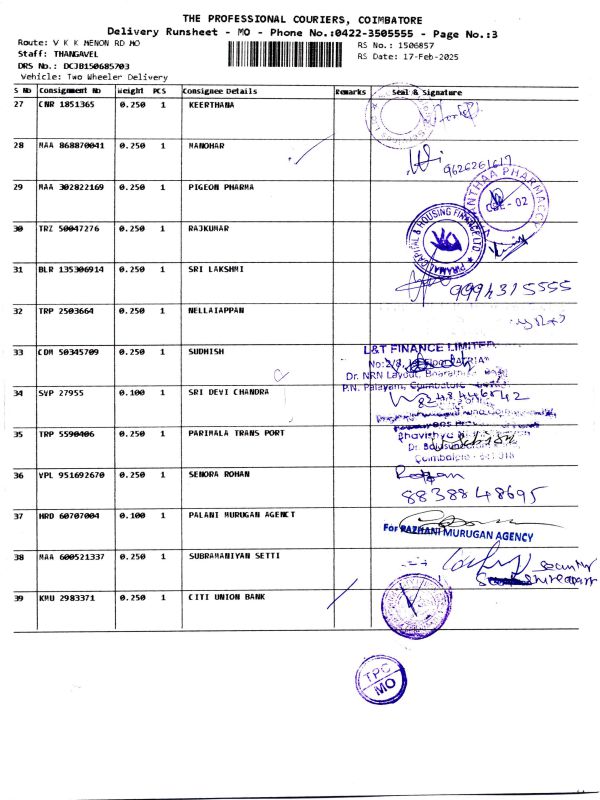 THE PROFESSIONAL COURIERS, COIMBATORE
Delivery Runsheet - MO - Phone No.:0422-3505555 - Page No.:3
Route: V K K MENON RD MO
RS No.: 1506857
Staff: THANGAVEL
RS Date: 17-Feb-2025
DRS No.: DCJB150685703
Vehicle: Two Wheeler Delivery
S No Consignment No Weight PCS Consignee Details Remarks Seal & Signature
27 CNR 1851365 0.250 1 KEERTHANA
28 MAA 868870041 0.250 1 MANOHAR
9626261617
29 MAA 302822169 0.250 1 PIGEON PHARMA
PHARMACCY
CBE - 02
30 TRZ 50047276 0.250 1 RAJKUMAR
PIRAMAL CAPITAL & HOUSING FINANCE LTD
31 BLR 135306914 0.250 1 SRI LAKSHMI
9994315555
32 TRP 2503664 0.250 1 NELLAIAPPAN
33 CDM 50345709 0.250 1 SUDHISH
L&T FINANCE LIMITED
No:2/8,
Dr. NRN Layout,
P.N. Palayam, Coimbatore
34 SVP 27955 0.100 1 SRI DEVI CHANDRA
8248446842
35 TRP 5590406 0.250 1 PARIMALA TRANS PORT
Bhavishya
Coimbatore
36 VPL 951692670 0.250 1 SENORA ROHAN
8838848695
37 HRD 60707004 0.100 1 PALANI MURUGAN AGENCY
For PAZHANI MURUGAN AGENCY
38 MAA 600521337 0.250 1 SUBRAMANIYAN SETTI
39 KMU 2983371 0.250 1 CITI UNION BANK
TPC
MO